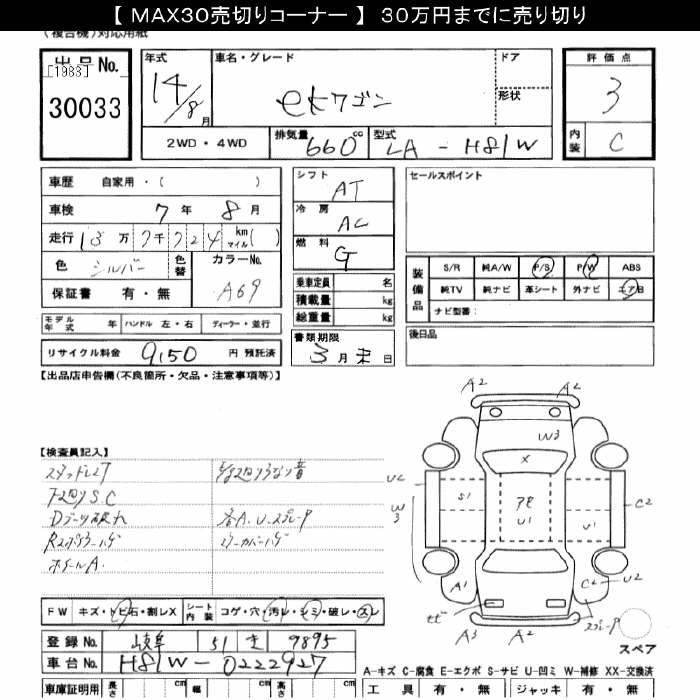 【 MAX30売切りコーナー 】 30万円までに売り切り
(複合機)対応用紙
出品No.
[1983]
30033
年式
14/8月
車名・グレード
ekワゴン
ドア
形状
2WD・4WD
排気量
660cc
型式
LA - H81W
評価点
3
内装
C
車歴 自家用・( )
車検 7年8月
走行 13万7千724 km マイル( )
色 シルバー
色替
カラーNo.
A69
保証書 有・無
シフト
AT
冷房
AC
燃料
G
乗車定員 名
積載量 kg
総重量 kg
セールスポイント
装備品
S/R 純A/W P/S P/W ABS
純TV 純ナビ 革シート 外ナビ エアB
ナビ型番:
モデル年式 年 ハンドル 左・右 ディーラー・並行
リサイクル料金 9,150 円 預託済
書類期限
3月末日
後日品
【出品店申告欄(不良箇所・欠品・注意事項等)】
【検査員記入】
スタッドレス7
下廻りS.C
Dブーツ破れ
ホイールA.
A2
A2
W3
X
UC
W3
S1
アセ
U1
U1
C2
A1
C2
U2
A3
A2
スペア
FW キズ・トビ石・割レX
シート内装 コゲ・穴・汚レ・シミ・破レ・スレ
登録No. 岐阜 51 き 9895
車台No. H81W-0222927
A-キズ C-腐食 E-エクボ S-サビ U-凹ミ W-補修 XX-交換済
車庫証明用 長さ cm 幅 cm 高さ cm
工具 有・無 ジャッキ 有・無